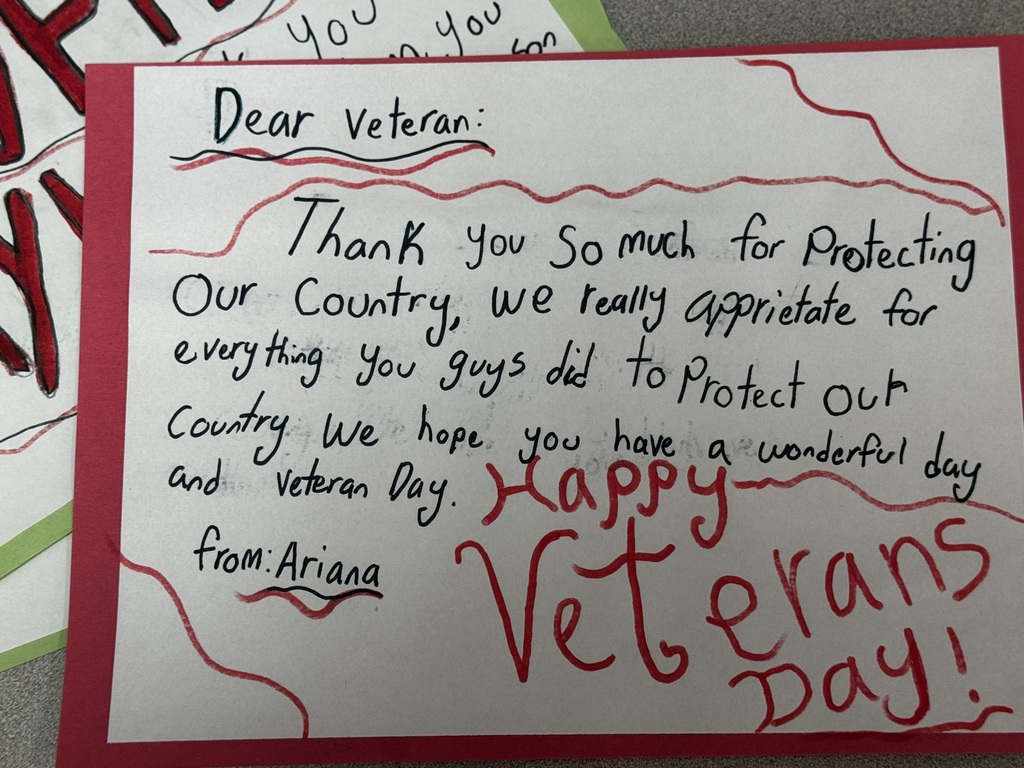 you
you
Dear veteran:
Thank you so much for Protecting
Our Country, we really apprietate for
everything you guys did to Protect our
Country. We hope you have a wonderful day
and veteran Day.
Happy
from: Ariana
Veterans
Day!